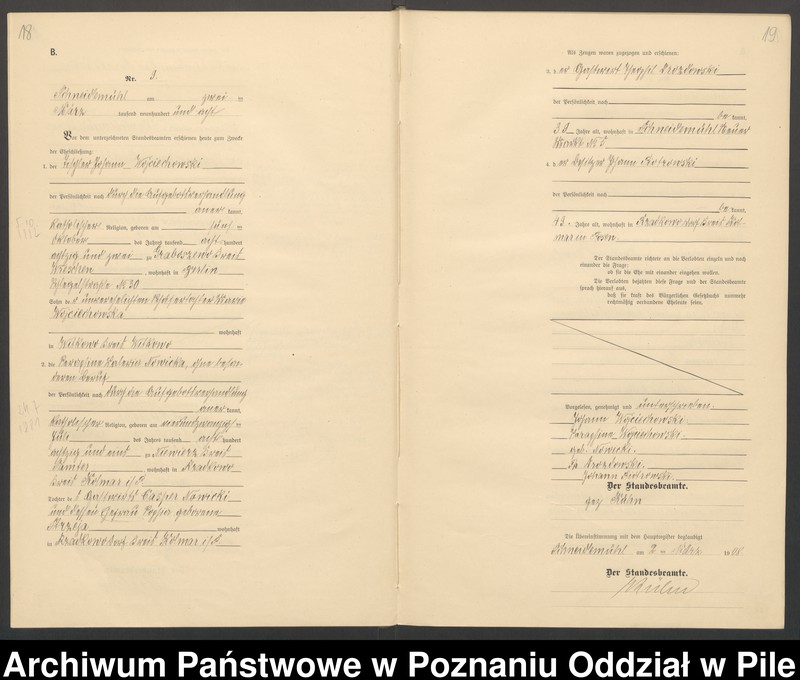 18
B.
Nr. 3.
Schneidemühl am zwei ten
März tausend neunhundert und acht
Vor dem unterzeichneten Standesbeamten erschienen heute zum Zwecke
der Eheschließung:
1. der Tischler Johann Wojciechowski
der Persönlichkeit nach durch die Aufgebotsverhandlung
aner kannt,
katholischer Religion, geboren am fünf ten
Oktober des Jahres tausend acht hundert
achtzig und zwei zu Graboszewo Kreis
Wreschen, wohnhaft in Berlin
N 30
Sohn de r unverehelichten Marie
Wojciechowska
wohnhaft
in Witkowo Kreis Witkowo
2. die Seraphine Nowicka, ohne beson-
deren Beruf
der Persönlichkeit nach durch die Aufgebotsverhandlung
aner kannt,
katholischer Religion, geboren am vierundzwanzig ten
Juli des Jahres tausend acht hundert
achtzig und neun zu Kreis
Samter, wohnhaft in Kradkowo
Kreis Kolmar i/P.
Tochter de s Gastwirts Casper Nowicki
und dessen Ehefrau geborene
wohnhaft
in Kreis Kolmar i/P.
19
Als Zeugen waren zugezogen und erschienen:
3. d er Gastwirt Drozdowski
der Persönlichkeit nach
be kannt,
Jahre alt, wohnhaft in Schneidemühl Neuer
Markt N 5
4. d er Besitzer Johann Piotrowski
der Persönlichkeit nach
be kannt,
43 Jahre alt, wohnhaft in Kreis Kol-
mar in Posen.
Der Standesbeamte richtete an die Verlobten einzeln und nach
einander die Frage:
ob sie die Ehe mit einander eingehen wollen.
Die Verlobten bejahten diese Frage und der Standesbeamte
sprach hierauf aus,
daß sie kraft des Bürgerlichen Gesetzbuchs nunmehr
rechtmäßig verbundene Eheleute seien.
Vorgelesen, genehmigt und unterschrieben
Johann Wojciechowski.
Seraphine Wojciechowski
geb. Nowicki.
Drozdowski.
Johann Piotrowski.
Der Standesbeamte.
gez. Kühn
Die Übereinstimmung mit dem Hauptregister beglaubigt
Schneidemühl am 2 ten März 19 08.
Der Standesbeamte.
Kühn
Archiwum Państwowe w Poznaniu Oddział w Pile